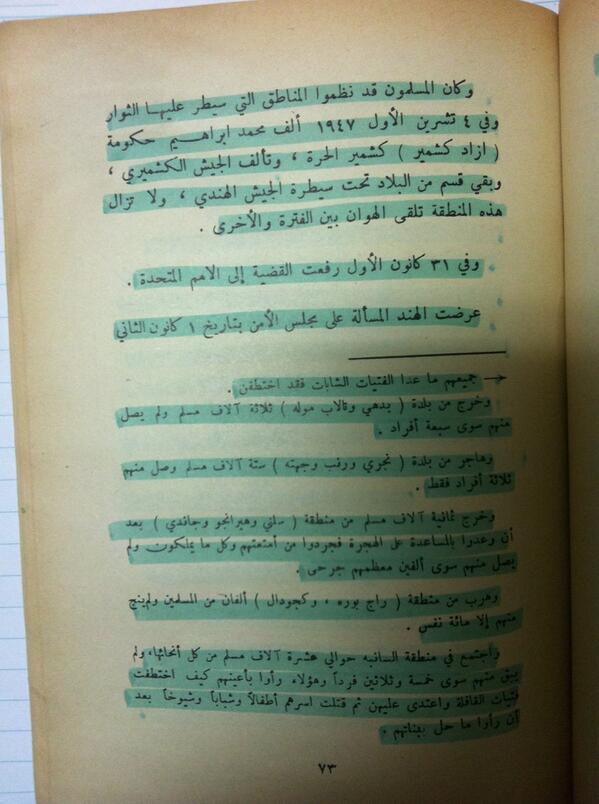 وكان المسلمون قد نظموا المناطق التي سيطر عليها الثوار
وفي ٤ تشرين الأول ١٩٤٧ ألف محمد ابراهيم حكومة
( ازاد كشمير ) كشمير الحرة ، وتألف الجيش الكشميري ،
وبقي قسم من البلاد تحت سيطرة الجيش الهندي ، ولا تزال
هذه المنطقة تلقى الهوان بين الفترة والأخرى .
وفي ٣١ كانون الأول رفعت القضية إلى الامم المتحدة .
عرضت الهند المسألة على مجلس الأمن بتاريخ ١ كانون الثاني
→ جميعهم ما عدا الفتيات الشابات فقد اختطفن .
وخرج من بلدة ( بدهي وتالاب موله ) ثلاثة آلاف مسلم ولم يصل
منهم سوى سبعة أفراد .
وهاجر من بلدة ( نجري ورنب وجهته ) ستة آلاف مسلم وصل منهم
ثلاثة أفراد فقط .
وخرج ثمانية آلاف مسلم من منطقة ( سلني وهيرانجو وجاندي ) بعد
أن وعدوا بالمساعدة على الهجرة فجردوا من أمتعتهم وكل ما يملكون ولم
يصل منهم سوى ألفين معظمهم جرحى .
وهرب من منطقة ( راج بوره ، وكجودال ) ألفان من المسلمين ولم ينج
منهم إلا مائة نفس .
واجتمع في منطقة السانبه حوالي عشرة آلاف مسلم من كل أنحائها، ولم
يبق منهم سوى خمسة وثلاثين فرداً وهؤلاء رأوا بأعينهم كيف اختطفت
فتيات القافلة واعتدى عليهن ثم قتلت اسرهم أطفالاً وشباباً وشيوخاً بعد
أن رأوا ما حل ببناتهم .
٧٣